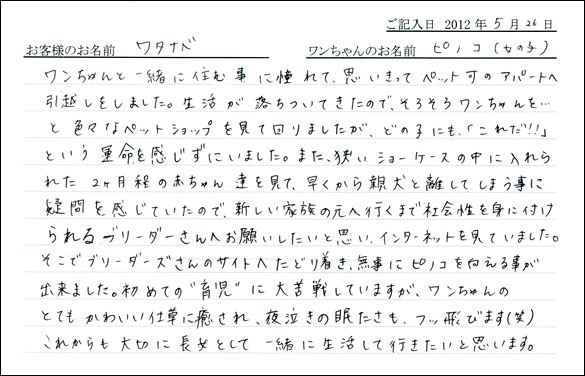 ご記入日 2012 年 5 月 26 日
お客様のお名前 ワタナベ ワンちゃんのお名前 ピノコ(女の子)
ワンちゃんと一緒に住む事に憧れて、思いきってペット可のアパートへ
引越しをしました。生活が落ちついてきたので、そろそろワンちゃんを…
と色々なペットショップを見て回りましたが、どの子にも、「これだ!!」
という運命を感じずにいました。また、狭いショーケースの中に入れら
れた2ヶ月程の赤ちゃん達を見て、早くから親犬と離してしまう事に
疑問を感じていたので、新しい家族の元へ行くまで社会性を身に付け
られるブリーダーさんへお願いしたいと思い、インターネットを見ていました。
そこでブリーダーズさんのサイトへたどり着き、無事にピノコを迎える事が
出来ました。初めての"育児"に大苦戦していますが、ワンちゃんの
とてもかわいい仕草に癒され、夜泣きの眠たさも、フッ飛びます(笑)
これからも大切に長女として一緒に生活して行きたいと思います。